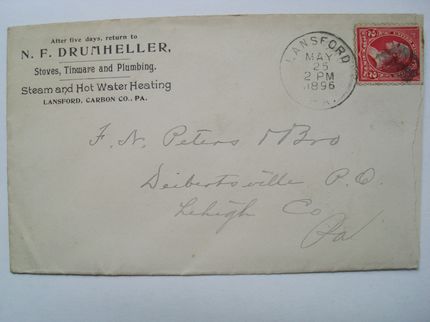 After five days, return to
N. F. DRUMHELLER,
Stoves, Tinware and Plumbing.
Steam and Hot Water Heating
LANSFORD, CARBON CO., PA.
LANSFORD
MAY
25
2 PM
1896
PA.
F. N. Peters & Bro
Deibertsville P.O.
Lehigh Co
Pa